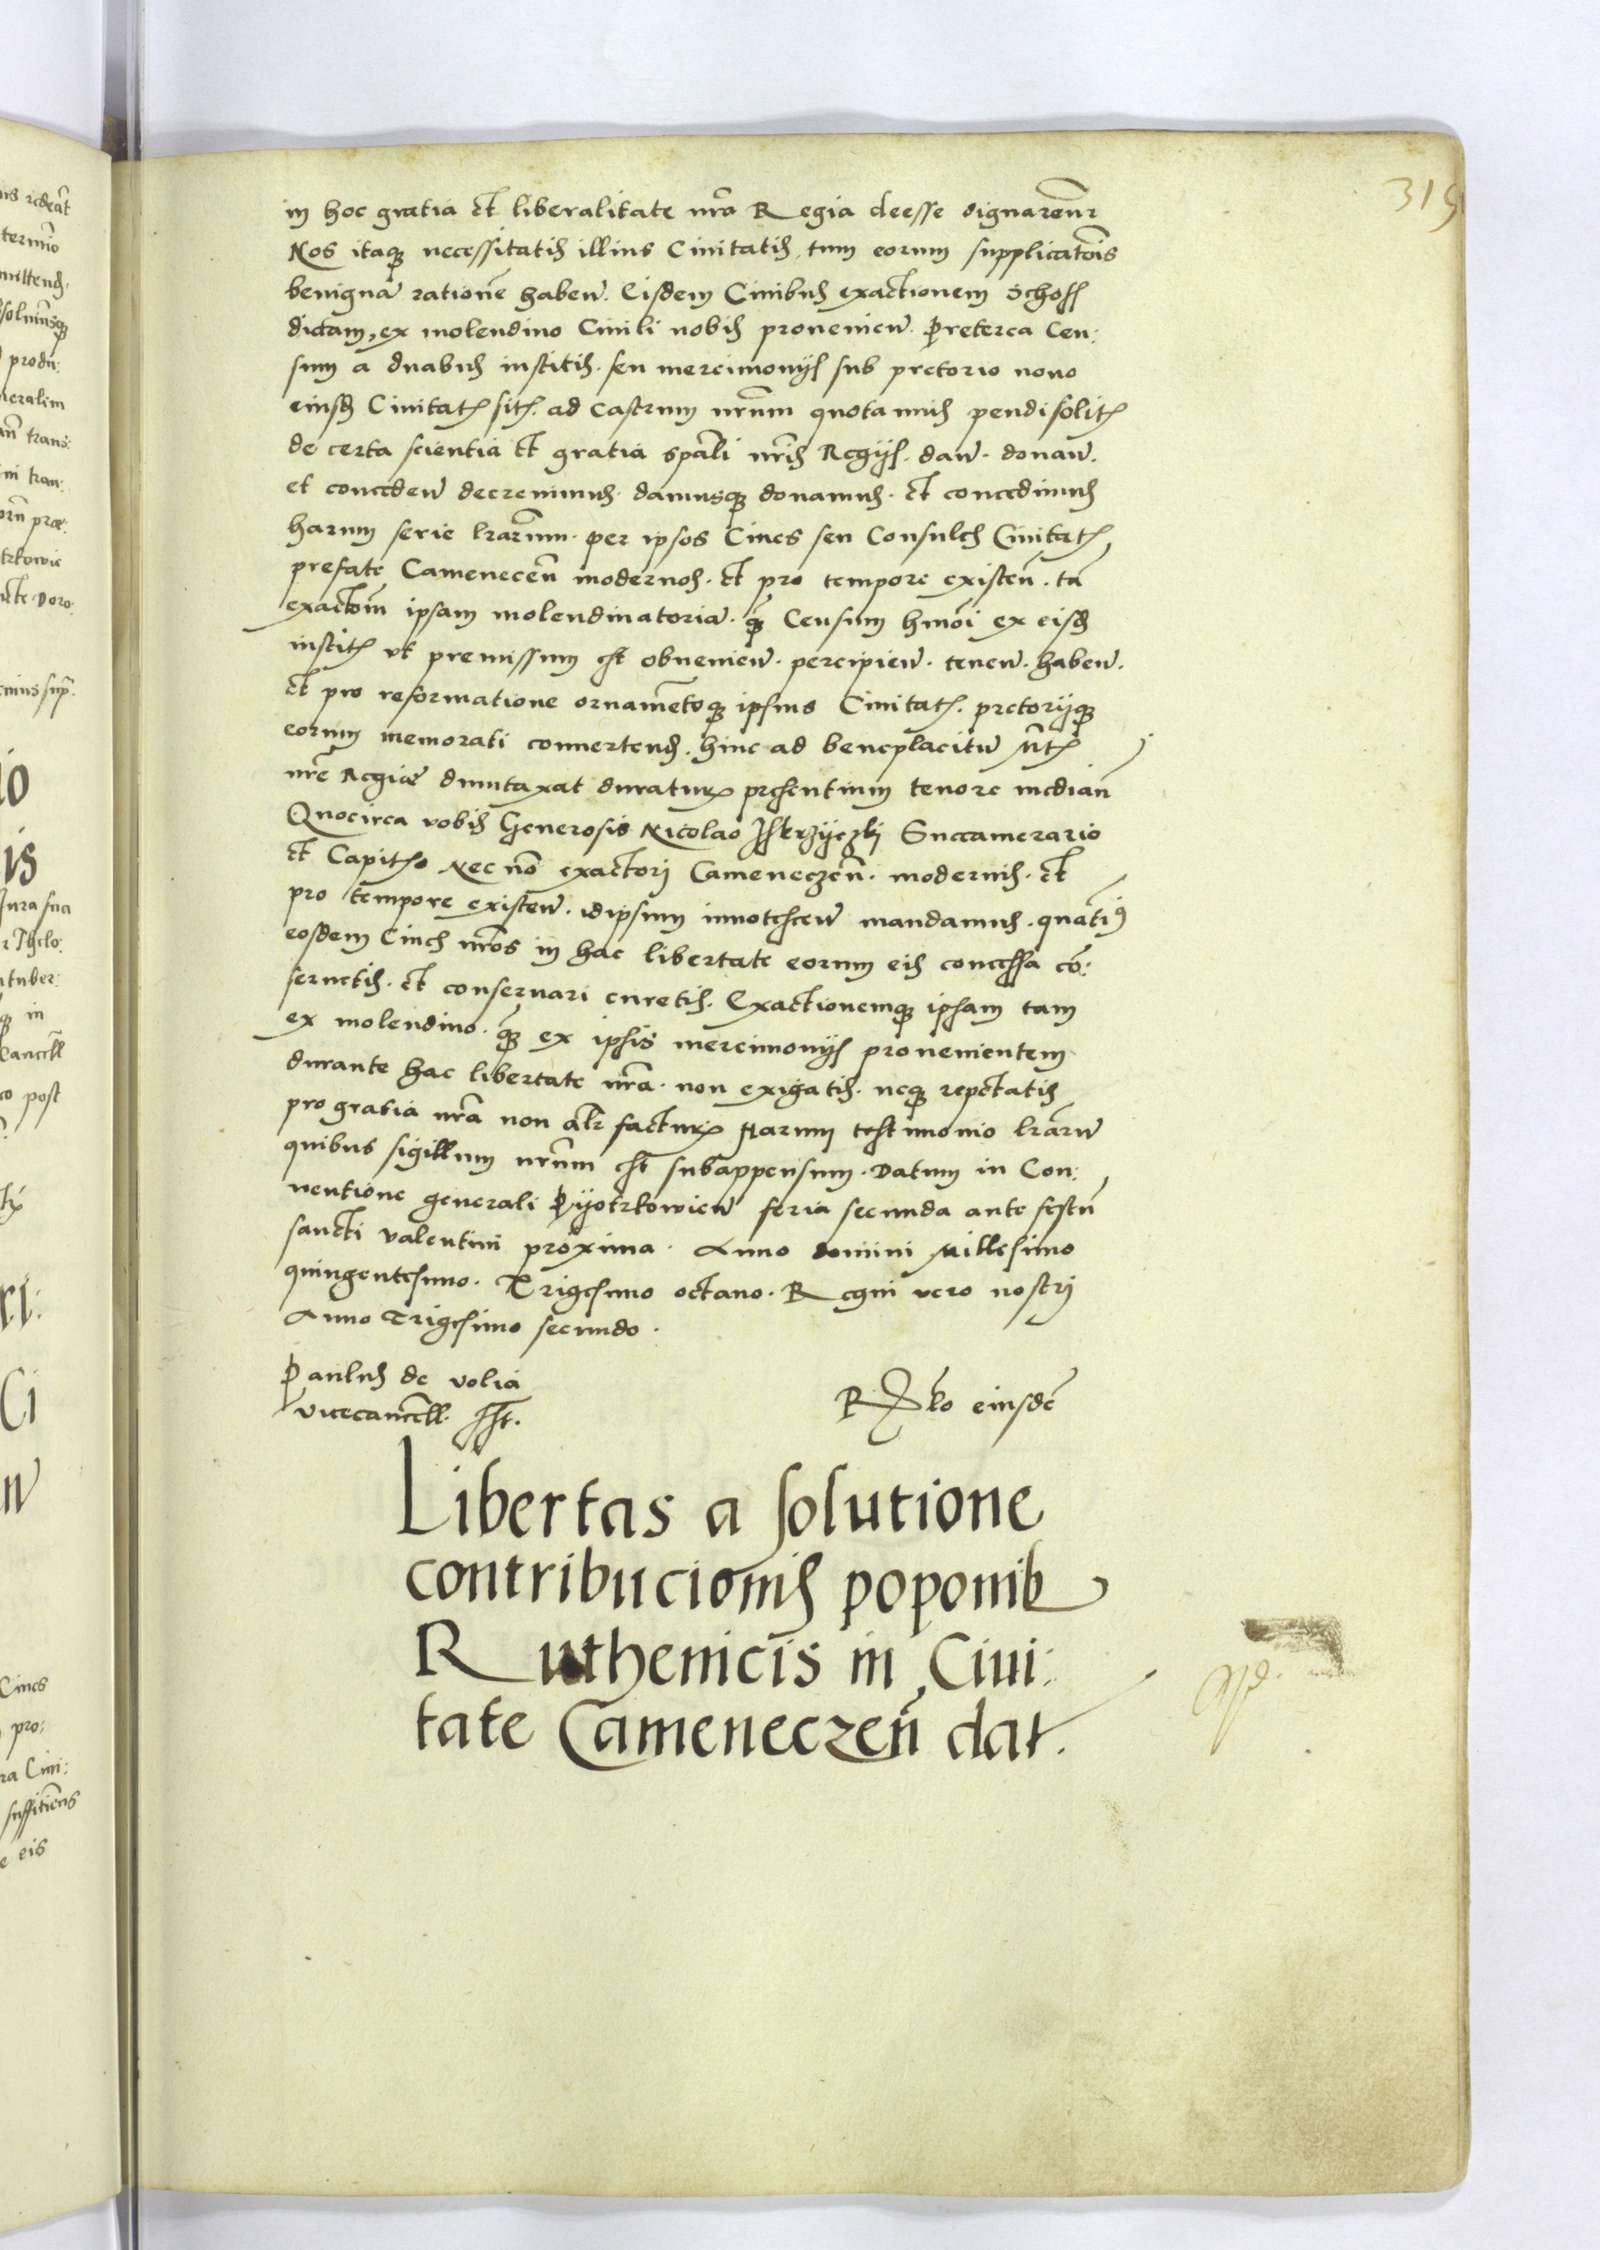 315
in hoc gratia et liberalitate nr̃a Regia deesse dignarem̃r
Nos itaq₃ necessitatis illius Ciuitatis, tum eorum supplicatõis
benignã rationẽ habeñ. Eisdem Ciuibus exactionem Schoss
dictam, ex molendino Ciuili nobis prouenieñ. Preterea Cen:
sum a duabus institis. seu mercimonijs sub pretorio nouo
eiusd Ciuitatis sitis. ad Castrum nr̃um quotannis pendi solitis
de certa scientia et gratia spãli nr̃is Regijs. dañ. donañ.
et concedeñ decreuimus. damusq₃ donamus. et concedimus
harum serie lr̃arum. per ipsos Ciues seu Consules Ciuitatis
prefate Camenecẽn modernos. et pro tempore existeñ. tã
exactõm ipsam molendinatoriã. q̃ Censum hmõi ex eisd
institis vt premissum est obuenieñ. percipieñ. teneñ. habeñ.
et pro reformatione ornamẽtoq₃ ipsius Ciuitatis. pretorijq₃
eorum memorati conuertend. hinc ad beneplacitũ Mtis
nr̃e Regiæ dumtaxat duraturis presentium tenore mediañ
Quocirca vobis Generosis Nicolao Iskrzyczki Succamerario
et Capiteo Nec nõ exactori Cameneczeñ. modernis. et
pro tempore existeñ. idipsum innotesceñ mandamus. quatẽus
eosdem Ciues nr̃os in hac libertate eorum eis concessa cõ:
seruetis. et conseruari curetis. Exactionemq₃ ipsam tam
ex molendino. q̃ ex ipsis mercimonijs prouenientem
durante hac libertate nr̃a. non exigatis. neq₃ repetatis
pro gratia nr̃a non alr̃ facturis Harum testimonio lr̃arũ
quibus sigillum nr̃um est subappensum. Datum in Con:
uentione generali Pyotrkowieñ feria secunda ante festũ
sancti Valentini proxima. Anno domini Millesimo
quingentesimo. Trigesimo octauo. Regni vero nostri
Anno Trigesimo secundo.
Paulus de volia
Vicecancell. sst.
Rlo eiusdẽ
Libertas a solutione
contribucionis poponib
Ruthenicis in Ciui:
tate Cameneczeñ dat.